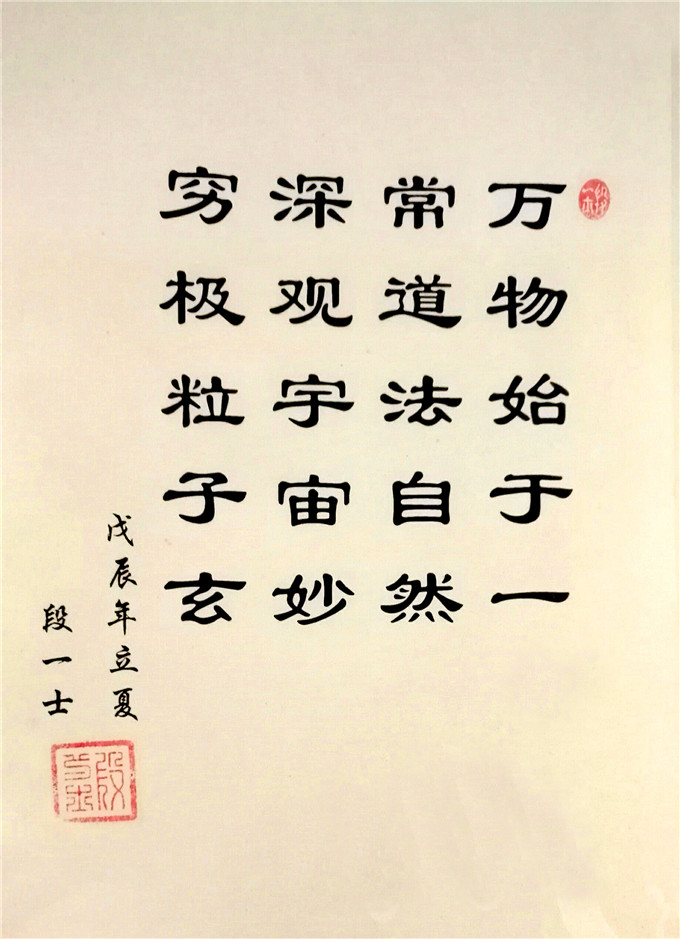 万物始于一
常道法自然
深观宇宙妙
穷极粒子玄
戊辰年立夏
段一士